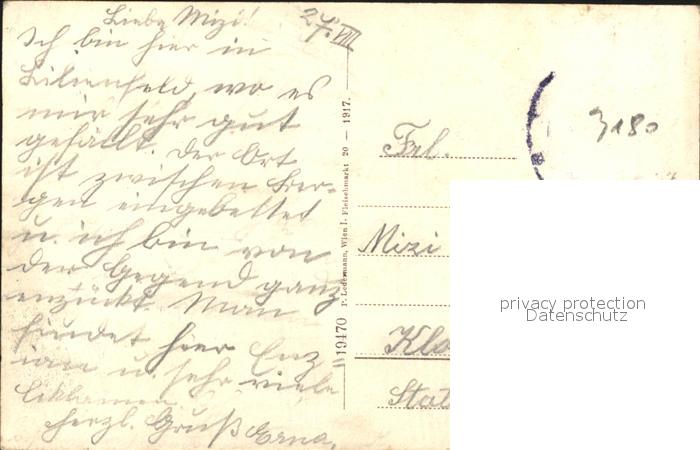 Liebe Mizi!
27. VIII
Ich bin hier in
Lilienfeld, wo es
mir sehr gut
gefällt. Der Ort
ist zwischen Ber-
gen eingebettet
u. ich bin von
der Gegend ganz
entzückt. Man
findet hier Enz-
ian u. sehr viele
Ciklamen.
Herzl. Gruß Erna.
19470 P. Ledermann, Wien I. Fleischmarkt 20 — 1917.
3180
Frl.
Mizi
privacy protection
Datenschutz